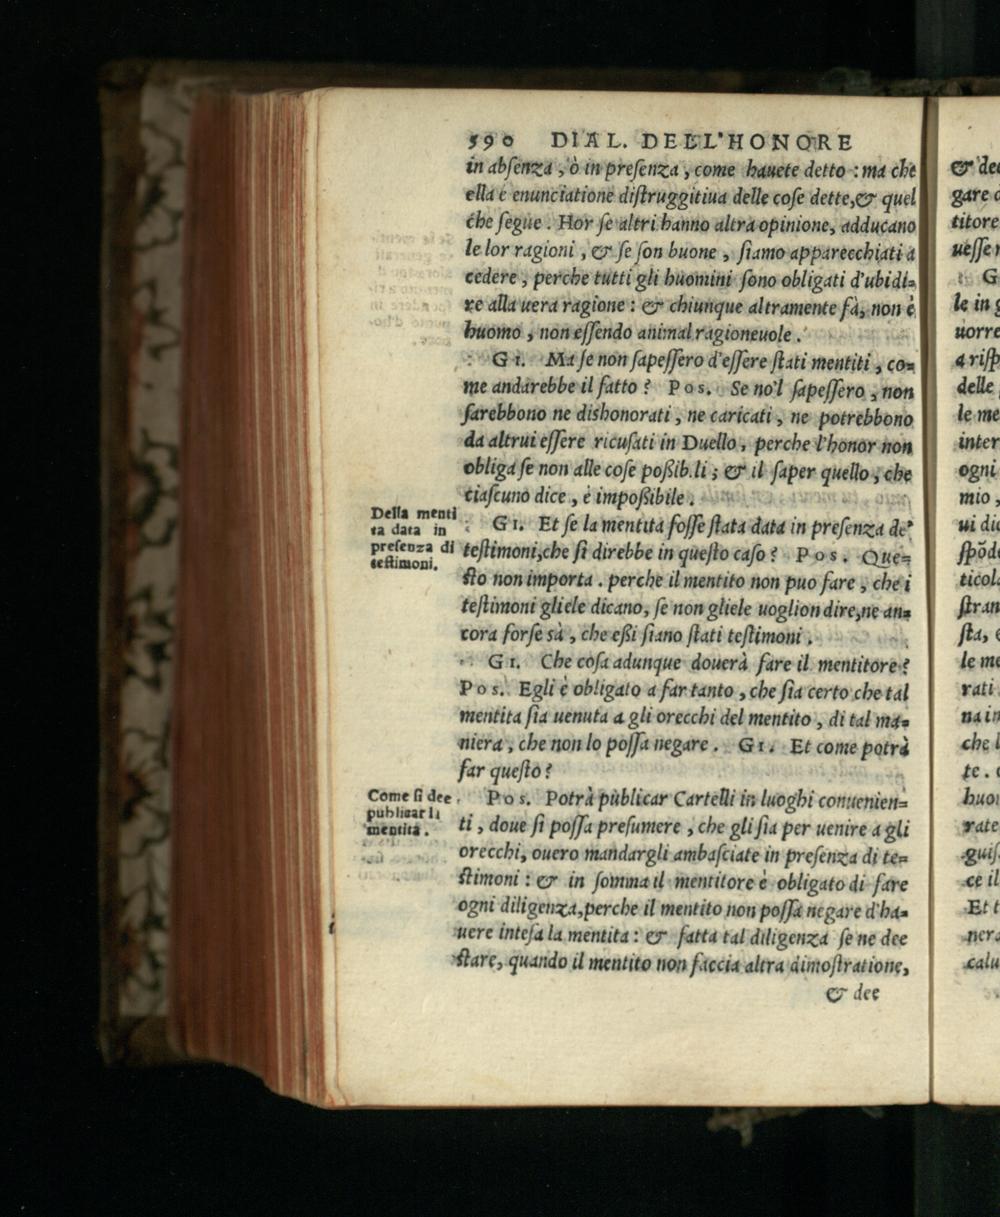 590 DIAL. DELL'HONORE
in absenza, ò in presenza, come hauete detto : ma che
ella è enunciatione distruggitiua delle cose dette,& quel
che segue. Hor se altri hanno altra opinione, adducano
le lor ragioni, & se son buone, siamo apparecchiati a
cedere, perche tutti gli huomini sono obligati d'ubidi-
re alla uera ragione : & chiunque altramente fà, non è
huomo, non essendo animal ragioneuole.
GI. Ma se non sapessero d'essere stati mentiti, co-
me andarebbe il fatto? POS. Se no'l sapessero, non
sarebbono ne dishonorati, ne caricati, ne potrebbono
da altrui essere ricusati in Duello, perche l'honor non
obliga se non alle cose poßib.li; & il saper quello, che
ciascuno dice, è impoßibile.
Della menti
ta data in
presenza di
testimoni.
GI. Et se la mentita fosse stata data in presenza de'
testimoni,che si direbbe in questo caso? POS. Que-
sto non importa. perche il mentito non puo fare, che i
testimoni gliele dicano, se non gliele uoglion dire,ne an-
cora forse sà, che eßi siano stati testimoni.
GI. Che cosa adunque douerà fare il mentitore?
POS. Egli è obligato a far tanto, che sia certo che tal
mentita sia uenuta a gli orecchi del mentito, di tal ma-
niera, che non lo possa negare. GI. Et come potrà
far questo?
Come si dee
publicar la
mentita.
POS. Potrà publicar Cartelli in luoghi conuenien-
ti, doue si possa presumere, che gli sia per uenire a gli
orecchi, ouero mandargli ambasciate in presenza di te-
stimoni : & in somma il mentitore è obligato di fare
ogni diligenza,perche il mentito non possa negare d'ha-
uere intesa la mentita : & fatta tal diligenza se ne dee
stare, quando il mentito non faccia altra dimostratione,
& dee